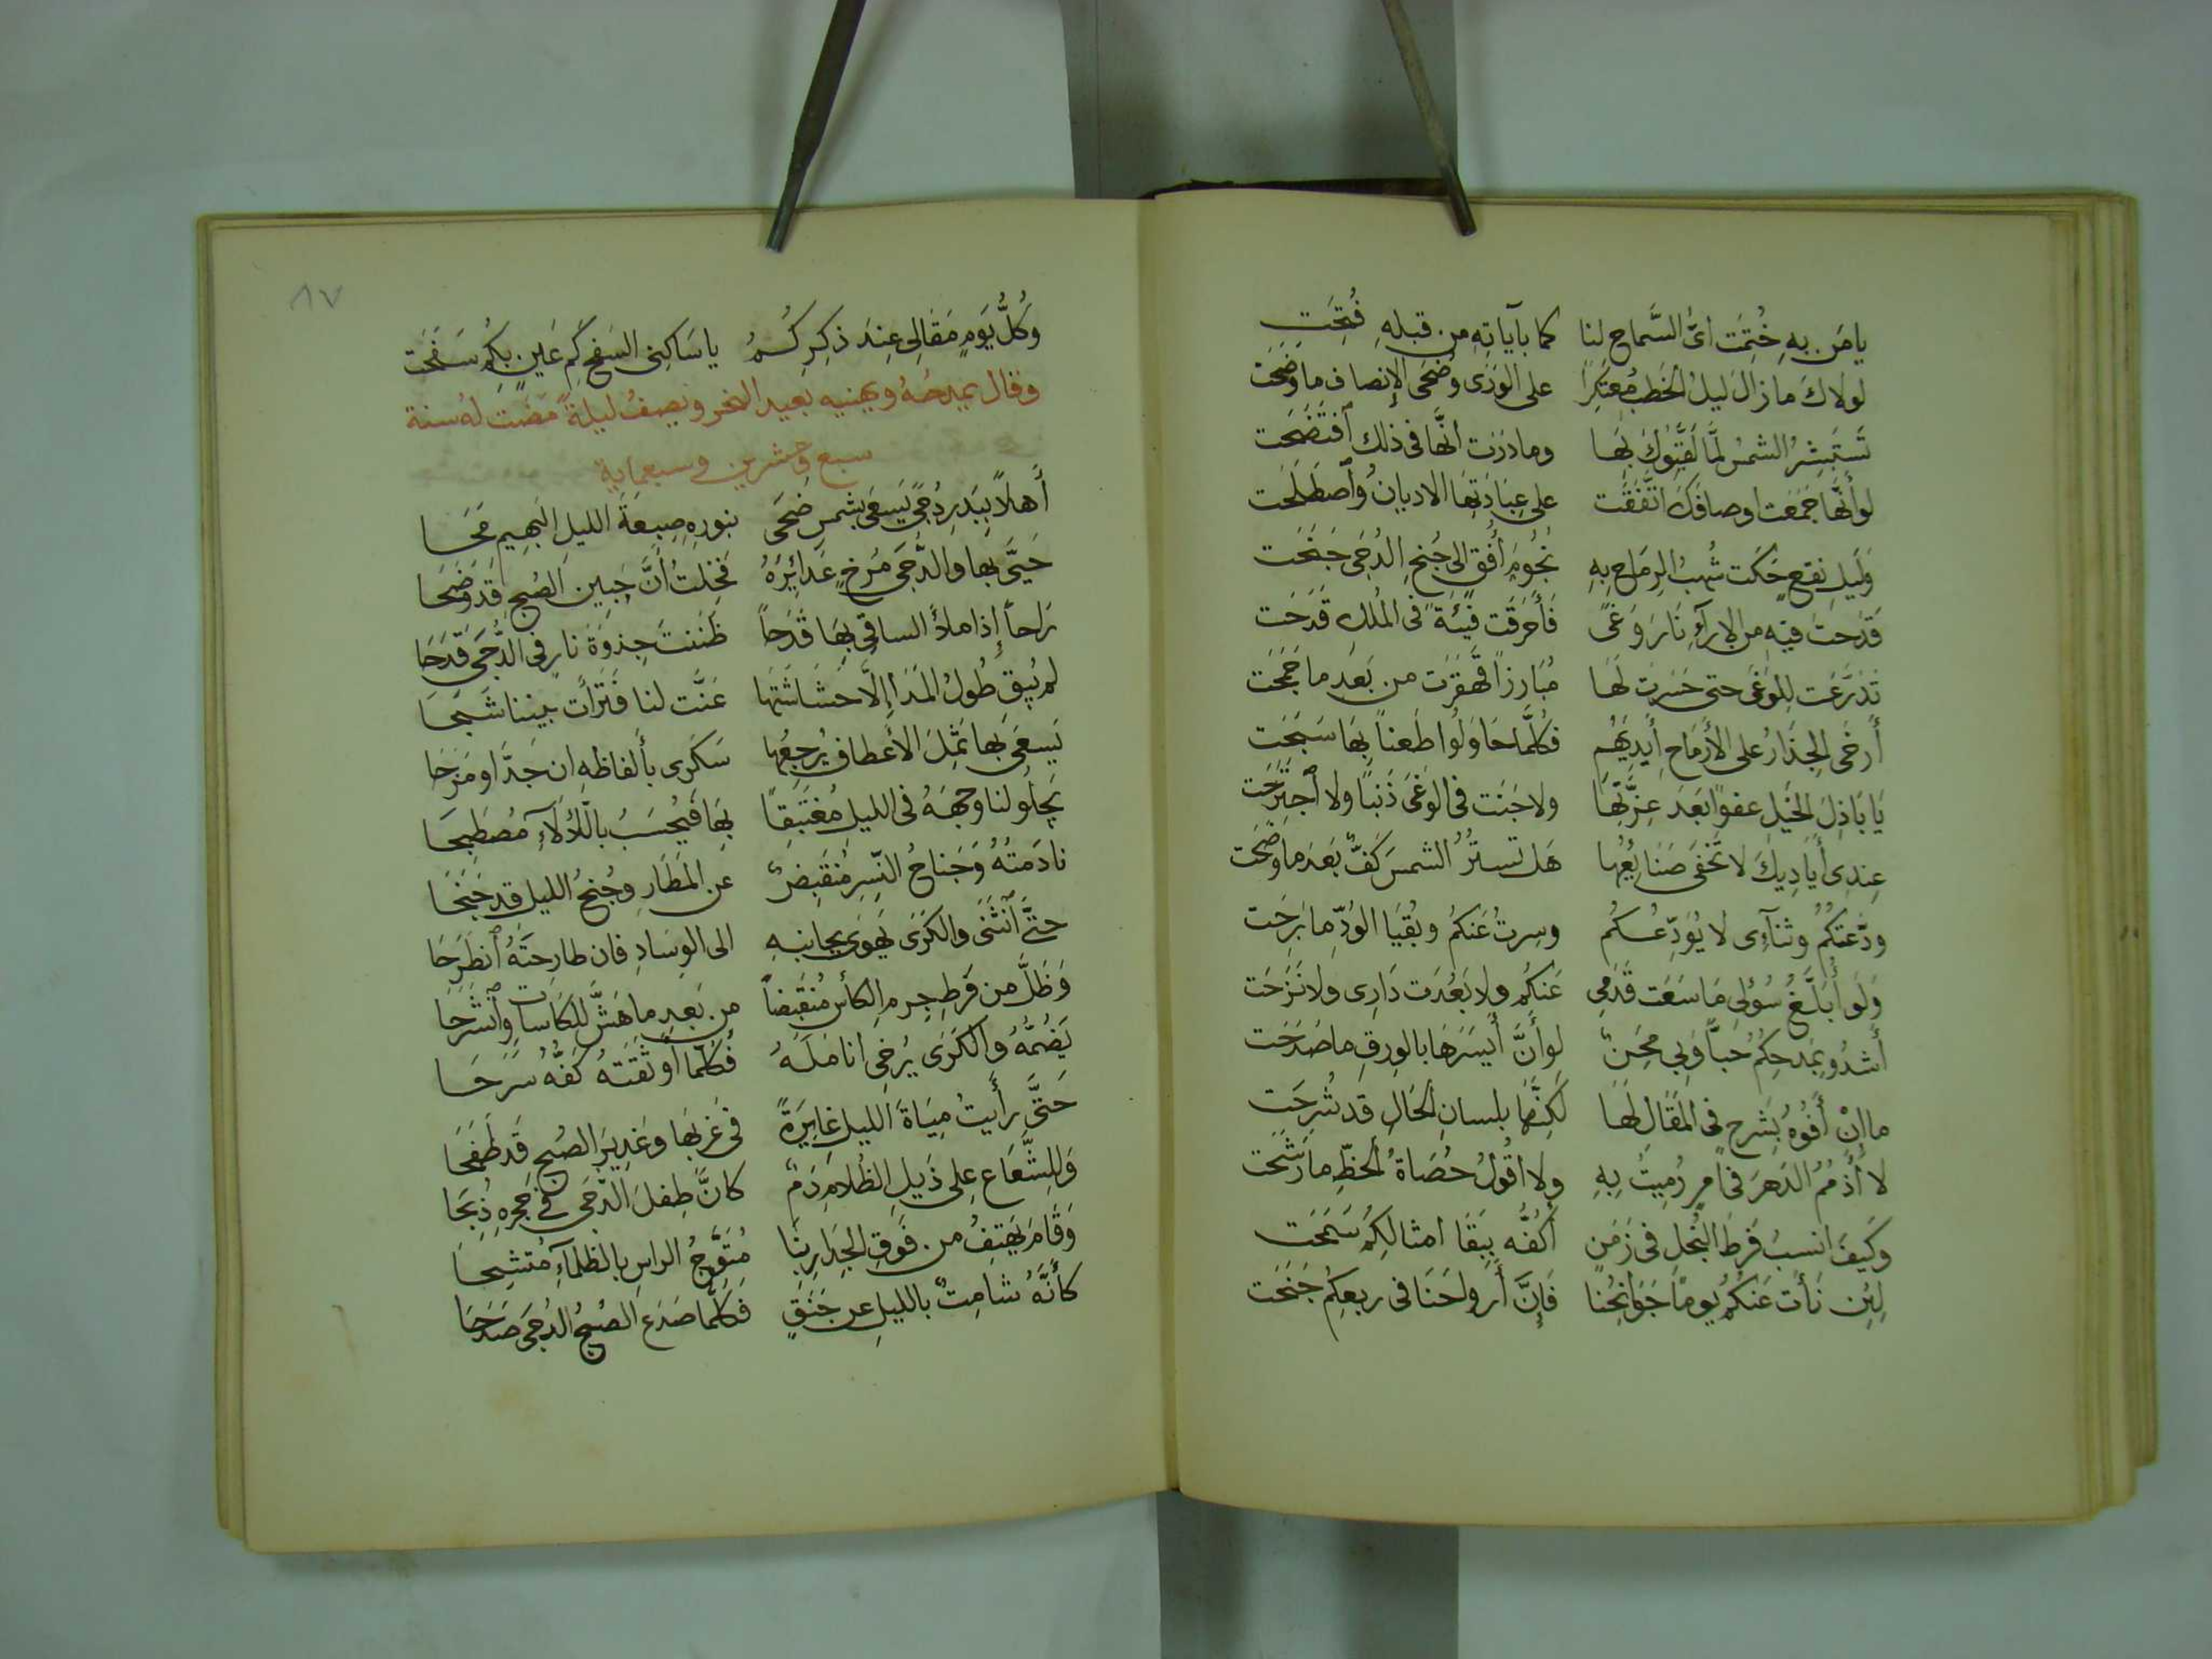 يا مَن بِهِ خُتِمَت آيُّ السَّماحِ لنا كما بآياتِهِ من قبلهِ فُتِحَتِ
لولاكَ ما زالَ ليلُ الخَطبِ مُعتَكِراً على الوَرَى وضُحَى الإنصاف ما وضَحَت
تَستَبشِرُ الشمسُ لمَّا لَقَّبُوكَ بِهَا وما دَرَت انَّها في ذلك اَفتَضَحَت
لو أنَّها جَمَعَت اوصافَكَ اتَّفَقَت على عِبَادَتِهَا الاديانُ وَاَصطَلَحَت
وَلَيلِ نقعٍ حَكَت شُهبُ الرِمَاحِ بِهِ نُجُومَ أُفُقٍ الى جُنحِ الدُجَى جَنَحَت
قَدَحتَ فيهِ من الارآءِ نَارَ وَغىً فَأَحرَقَت فِئَةً في المُلكِ قَدَحَت
تَدَرَّعَت لِلوَغَى حتى حَسَرتَ لَهَا مُبَارزاً قَهقَرَت من بَعدِ ما جَمَحَت
أَرخَى الحِذَارُ على الأَرمَاحِ أَيدِيَهُم فكُلَّما حَاوَلُوا طَعناً بِهَا سَبَحَت
يَا بَاذِلَ الخَيلِ عفوًا بَعدَ عِزَّتِهَا ولا جَنَت في الوَغَى ذَنبًا ولا اَجتَرَحَت
عِندِى أَيَادِيكَ لا تَخفَى صَنَايِعُها هَل تَستُرُ الشمسَ كَفٌّ بَعدَ ما وضَحَت
ودَّعتُكُمُ وثنآءِى لا يُوَدِّعُكُم وسِرتُ عَنكُمُ وبُقيَا الوُدِّ ما بَرِحَت
وَلَو أُبَلَّغُ سُؤلِى مَا سَعَت قَدَمِى عَنكُم ولا بَعُدَت دَارِى ولا نَزَحَت
أَشدُو بمَدحِكُمُ حُبًّا وَبِي مِحَنٌ لو أَنَّ أَيسَرَهَا بالوِرقِ ما صَدَحَت
ما إِن أَفُوهُ بِشَرحٍ في المَقَالِ لَهَا لَكِنَّها بلسانِ الحَالِ قد شُرِحَت
لا أَذمُمُ الدَهرَ في امرٍ رُمِيتُ بِهِ ولا اقُولُ حُصَاةُ الحظِّ ما رَشَحَت
وكَيفَ انسبُ فَرطَ البُخلِ في زَمَنٍ أكُفُّه بِبَقَا امثالِكُم سَمَحَت
لئِن نَأَت عَنكُمُ يومًا جَوَانِحُنا فَإِنَّ أَرواحَنَا في ربعِكُم جَنَحَت
٨٧
وَكُلُّ يَومٍ مَقَالِى عِندَ ذِكرِكُمُ يا سَاكِنِى السَفحِ كَم عَينٍ بِكُم سَفَحَت
وقال يمدحُهُ ويهنيه بعيد النحر ويصفُ ليلةً مَضَت لهُ سنة
سبع وعشرين وسبعماية
أَهلاً بِبَدرِ دُجًى يَسعَى بشمسِ ضحَى بنورهِ صِبغةَ الليلِ البَهِيمِ مَحَا
حَيَّى بها والدُّجَى مُرخٍ غَدَائِرَهُ فَخِلتُ أَنَّ جَبِينَ الصُبحِ قد وَضَحَا
رَاحاً إِذا ملأَ الساقِي بِهَا قَدَحاً ظَنَنتَ جِذوَةَ نارٍ في الدُّجَى قَدَحَا
لم يُبقِ طُولُ المَدَا إِلَّا حَشَاشَتَها عَنَّت لنا فَتَرَأَت بيننا شَبَحَا
يَسعَى بِهَا ثَمِلَ الأعطافِ يُرجِعُها سَكرَى بأَلفاظهِ ان جَدَّ او مَزَحَا
يَجلُو لنا وجهَهُ في الليلِ مُغتَبِقاً بِهَا فَيُحسَبُ باللَّأْلَآءِ مُصطَبِحَا
نادَمتُهُ وَجَناحُ النَّسرِ مُنقَبِضٌ عن المَطَارِ وجُنحُ الليلِ قد جَنَحَا
حتَّى اَنثَنَى والكَرَى يَهوِى بجانبِهِ الى الوِسَادِ فان طارحتَهُ اَنطَرَحَا
وَظَلَّ من فَرطِ جِرمِ الكأسِ مُنقَبِضاً من بَعدِ ما هَشَّ لِلكَاساتِ وأنشَرَحَا
يَضُمُّهُ وَالكَرَى يُرخِى انامِلَهُ فكُلَّما أَوثَقَتهُ كَفُّه سَرَحَا
حَتَّى رَأَيتُ مِيَاهَ الليلِ غايِرَةً في غَربِهَا وغَدِيرَ الصُبحِ قد طَفَحَا
وَلِلشُّعَاعِ على ذَيلِ الظَلامِ دَمٌ كانَّ طِفلَ الدُّجَى في حجرهِ ذُبِحَا
وَقَامَ يَهتِفُ من فَوقِ الجِدَارِ بِنَا مُتَوَّجُ الراسِ بالظَلمآءِ مُتشِحا
كأَنَّهُ شامِتٌ بالليلِ عن حَنَقٍ فكُلَّما صَدَعَ الصُبحُ الدُجَى صَدَحَا